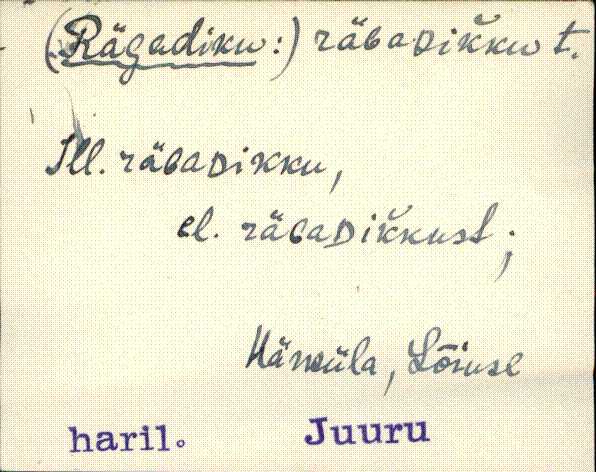 (Rägadiku:) räGaDik̆ku t.
Ill. räGaDikku,
el. räGaDik̆kust;
Härküla, Lõiuse
haril. Juuru